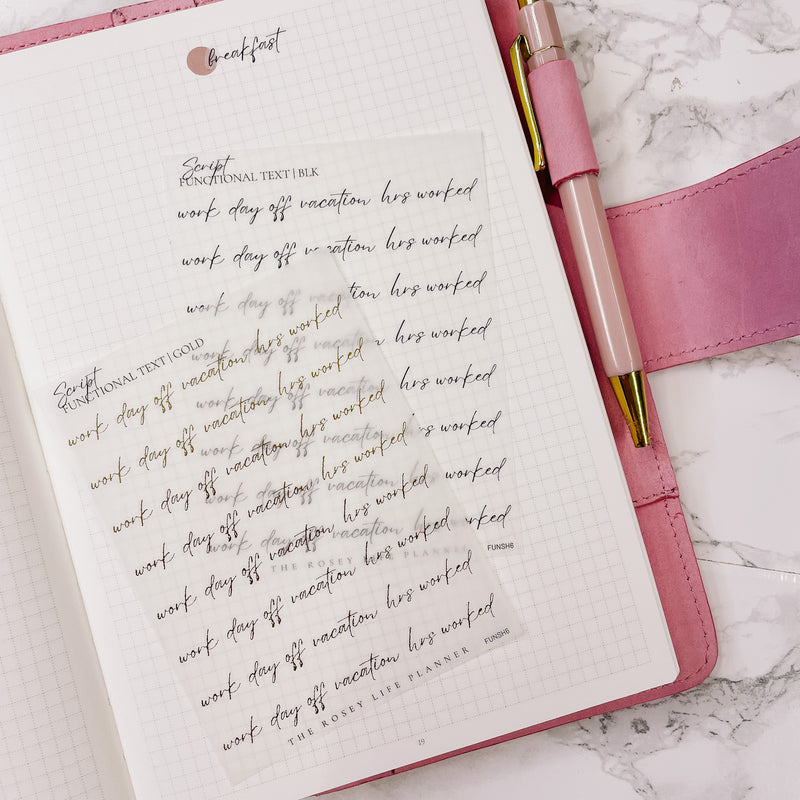 breakfast
Script
FUNCTIONAL TEXT | BLK
work day off vacation hrs worked
work day off vacation hrs worked
work day off vacation hrs worked
work day off vacation hrs worked
work day off vacation hrs worked
work day off vacation hrs worked
work day off vacation worked
work day off vacation worked
THE ROSEY LIFE PLANNER
FUNSH6
Script
FUNCTIONAL TEXT | GOLD
work day off vacation hrs worked
work day off vacation hrs worked
work day off vacation hrs worked
work day off vacation hrs worked
work day off vacation hrs worked
work day off vacation hrs worked
work day off vacation hrs worked
work day off vacation hrs worked
THE ROSEY LIFE PLANNER
FUNSH6
19